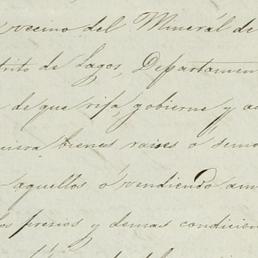 vecino del Mineral de
trito de Lagos, Departamen
de que rija, gobierne y a
quiera bienes raises ó semo
aquellos ó vendiendo am
los precios y demas condicion